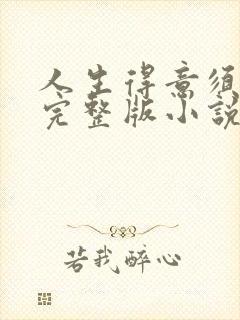 人生得意须
完整版小說
若我醉心